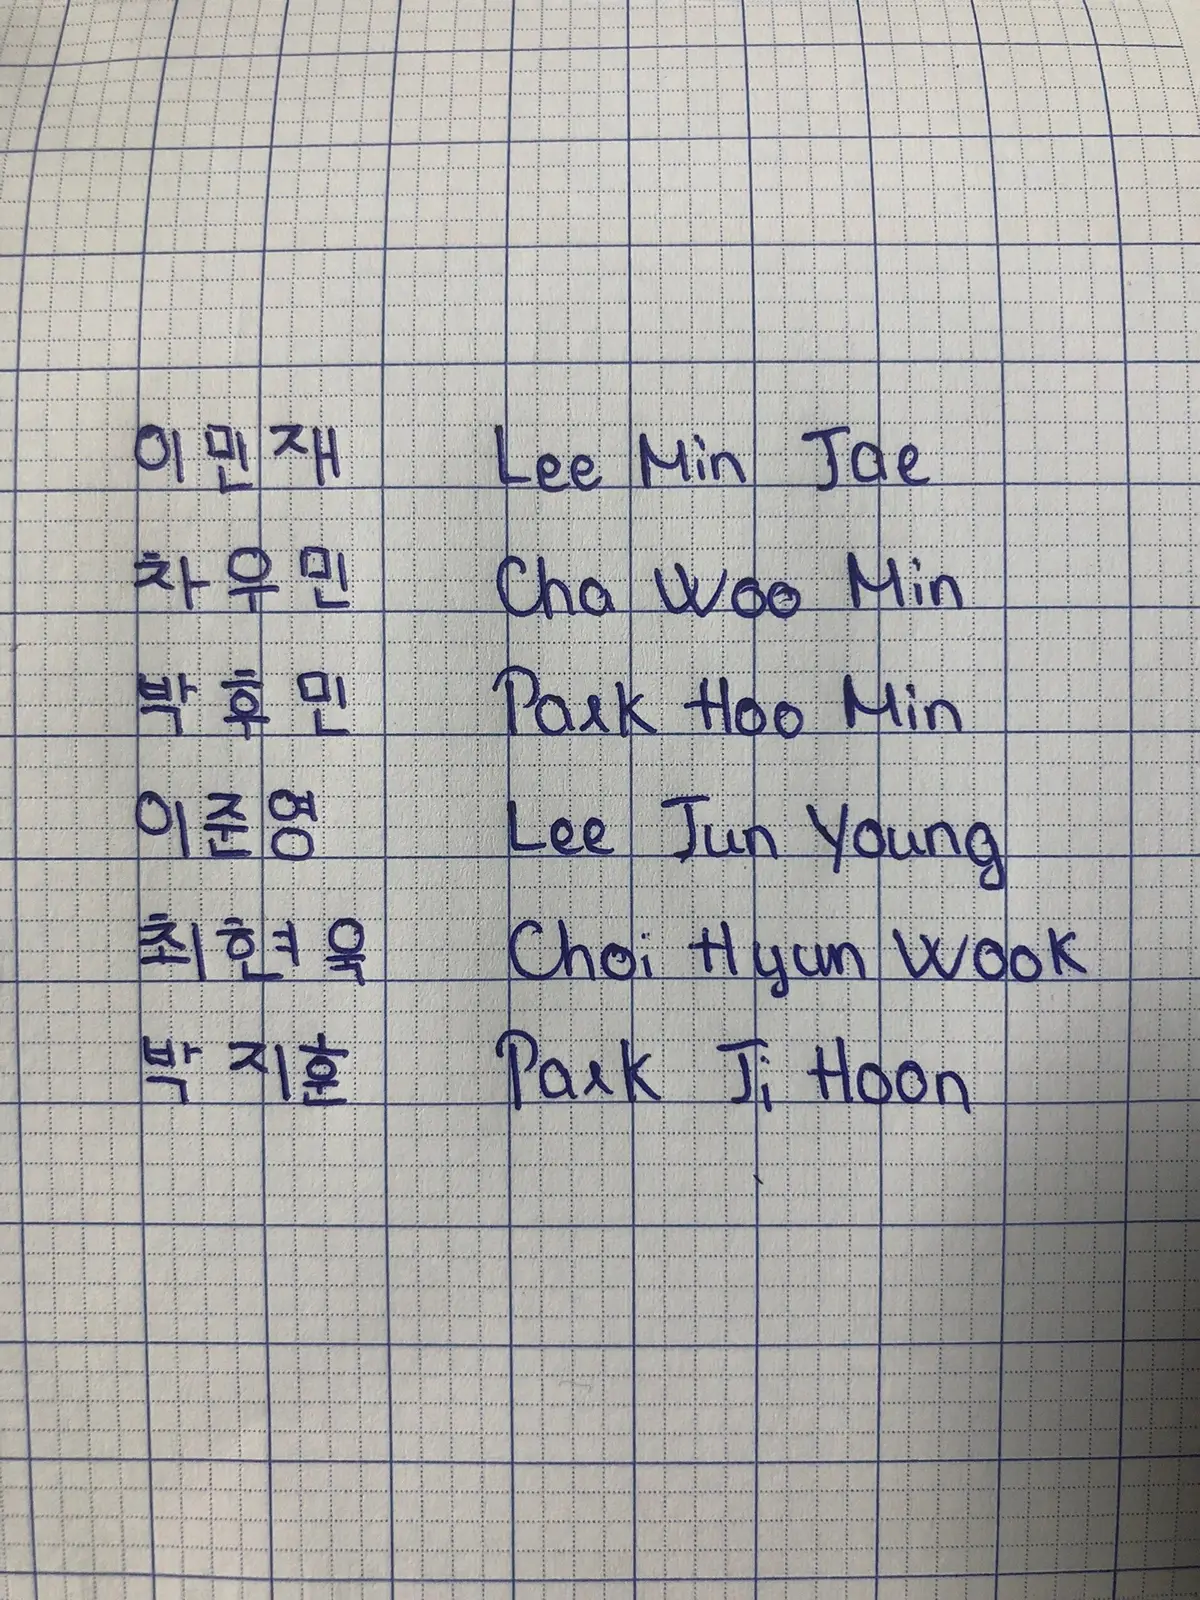 이민재 Lee Min Jae
차우민 Cha Woo Min
박후민 Park Hoo Min
이준영 Lee Jun Young
최현욱 Choi Hyun Wook
박지훈 Park Ji Hoon